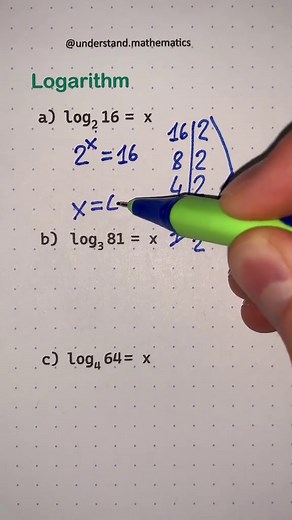 @understand.mathematics
Logarithm
a) log₂16 = x
2ˣ = 16
16|2
8|2
4|2
x =
2
b) log₃81 = x
c) log₄64 = x